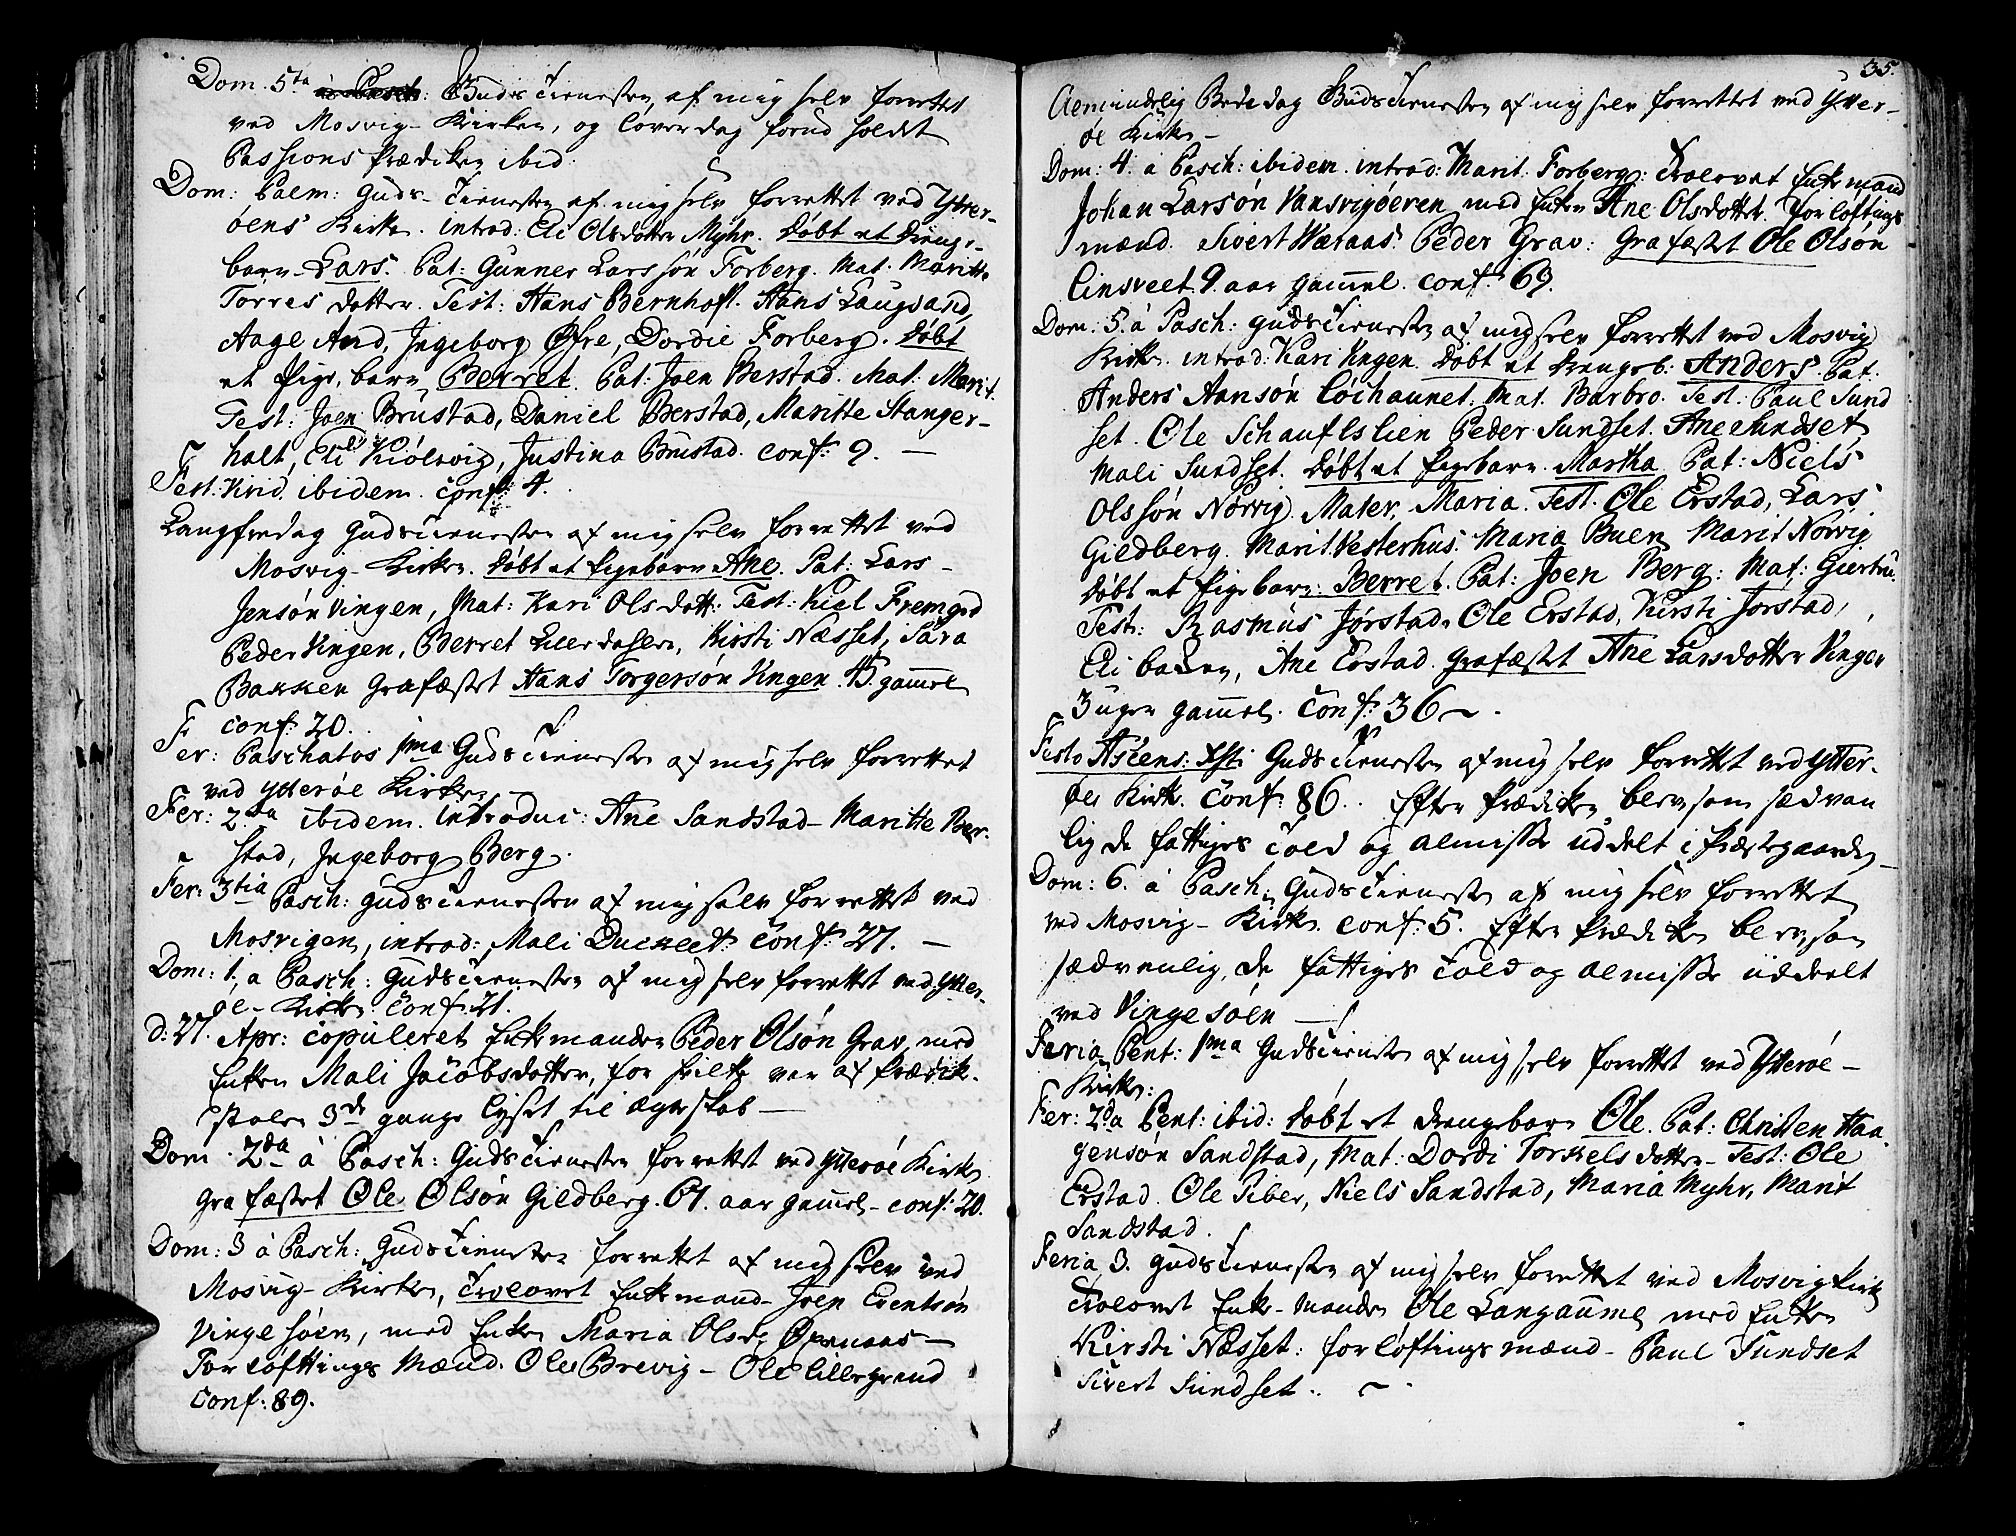 Dom. 5ta Guds Tienesten, af mig selv forrettet
ved Mosvig-Kirken, og loverdag forud holdet
Passions Prædiken ibid.
Dom: Palm: Guds-Tienesten af mig selv forrettet ved Ytter-
öens Kirke. introd: Eli Olsdotter Myhr. Döbt et drenge-
barn Lars. Pat: Gunner Larssön Forberg. Mat: Maritte
Torres dotter. Test: Hans Bernhoft. Hans Laugsand,
Aage And, Jngeborg Öfre, Dordie Forberg. Döbt
et Pige-barn Berret. Pat: Joen Berstad. Mat: Marit.
Test: Joen Brustad, Daniel Berstad, Maritte Stanger-
halt, Eli Kiölsvig, Justina Brustad. conf: 9. —
Fest: Virid. ibidem. conf: 4.
Langfredag Gudstienesten af mig selv forrettet ved
Mosvig-Kirken. Döbt et Pigebarn Ane. Pat: Lars
Jensön Vingen, Mat: Kari Olsdott: Test: Kiel Fremgrd
Peder Vingen, Berret Lillerdalen, Kirsti Næsset, Sara
Bakken Grafæstet Hans Torgersön Vingen. gamel
conf: 20.
Fer: Paschatos 1ma Guds Tienesten af mig selv forrettet
ved Ytteröe Kirke
Fer: 2da ibidem. introduc: Ane Sandstad- Maritte Ber-
stad, Jngeborg Berg.
Fer: 3tia Pasch: Gudstienesten af mig selv forrettet ved
Mosvigen, introd: Mali Duckledt: Conf: 27. —
Dom: 1. a Pasch: Gudstienesten af mig selv forrettet ved Ytter-
öe- Kirke Conf: 21.
d: 27. Apr: copuleret Enkemanden Peder Olsön Grav, med
Enken Mali Jacobsdotter, for hvilke var af Prædik-
stolen 3de gange lyset til ægteskab —
Dom. 2da à Pasch: Guds Tienesten forrettet ved Ytteröe Kirke
Grafæstet Ole Olsön Gieldberg. aar gamel- conf: 20.
Dom: 3 à Pasch: Guds Tienesten forrettet af mig selv ved
Mosvig-Kirke, Trolovet Enkemand- Joen Eventsön
Vinge söen, med Enken Maria Olsd.
Forlöftnings Mænd. Ole Brevig- Ole Lillegrund
Conf: 89.
35.
Almindelig Bededag Guds Tienesten af mig selv forrettet ved Ytter-
öe Kirke-
Dom: 4. a Pasch: ibidem. introd: Marit. Forberg: Trolovet Enkemand
Johan Larsön Vansvigöeren med Enken Ane Olsdotter. Forlöftings
mænd. Sivert Væraas. Peder Grav: Grafæstet Ole Olsön
Linsveet. 9. aar gamel. Conf: 69.
Dom: 5. à Pasch: Gudstienesten af mig selv forrettet ved Mosvig
Kirke. introd: Kari Vingen. Döbt et drengeb: Anders Pat:
Anders Hansön Löchaunet. Mat. Barbro. Test: Paul Sund
set. Ole Schauflslien Peder Sundset. Ane Sundset,
Mali Sundset. Döbt et Pigebarn. Martha. Pat: Niels
Olssön Nörvig. Mater, Maria. Test. Ole Erstad, Lars
Gieldberg. Marit Vesterhus. Maria Buen, Marit Nörvig
Döbt et Pigebarn: Berret. Pat: Joen Berg: Mat: Giertru.
Test: Rasmus Jörstad. Ole Erstad, Kirsti Jörstad,
Eli, Ane Erstad. Grafæstet Ane Larsdotter Vingen
3 uger gamel. Conf: 36 –.
Festo Ascens: Xsti Guds Tienesten af mig selv forrettet ved Ytter-
öes Kirke. Conf: 86. Efter Prædiken blev, som sædvan
lig de fattiges Told og Almisse uddelt i Præstegaarden-
Dom: 6. à Pasch: Guds Tienesten af mig selv forrettet
ved Mosvig-Kirke. conf: 5. Efter Prædiken blev, som
sædvenlig, de fattiges Told og Almisse uddeelt
ved Vingesöen —
Feria Pent: 1ma Gudstienesten af mig selv forrettet ved Ytteröe-
Kirke:
Fer: 2da Pent: ibid: Döbt et drengebarn Ole. Pat: Christen Haa
gensön Sandstad, Mat: Dordi Torkels dotter- Test: Ole
Erstad. Ole Siber, Niels Sandstad, Maria Myhr, Marit
Sandstad.
Feria 3. Gudstienesten af mig selv forrettet ved Mosvig Kirke
Trolovet Enke-manden Ole Langaunet med Enken
Kirsti Næsset: Forlöftings mænd- Paul Sundset
Sivert Sundset. –